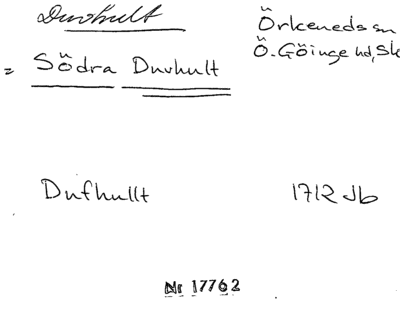 Duvhult
Örkeneds sn
Ö. Göinge hd, Sk
= Södra Duvhult
Dufhullt 1712 Jb
Nr 17762